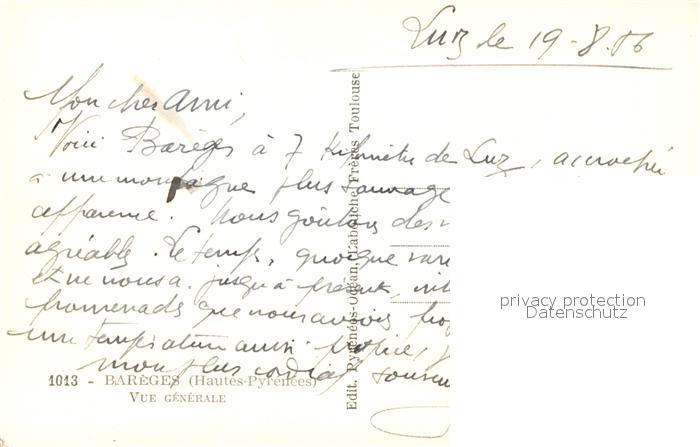 Luz le 19-8.56
Mon cher Ami,
Voici Barèges à 7 kilomètres de Luz, accrochée
à une montagne plus sauvage
apparence. Nous goûtons des
agréable. Le temps, quoique vari
et ne nous a jusqu'à présent, int
promenades que nous avons pro
une température aussi propice,
mon plus cordial souven
1013 - BARÈGES (Hautes-Pyrénées)
VUE GÉNÉRALE
Edit. Pyrénées-Océan, Labouche Frères Toulouse
privacy protection
Datenschutz